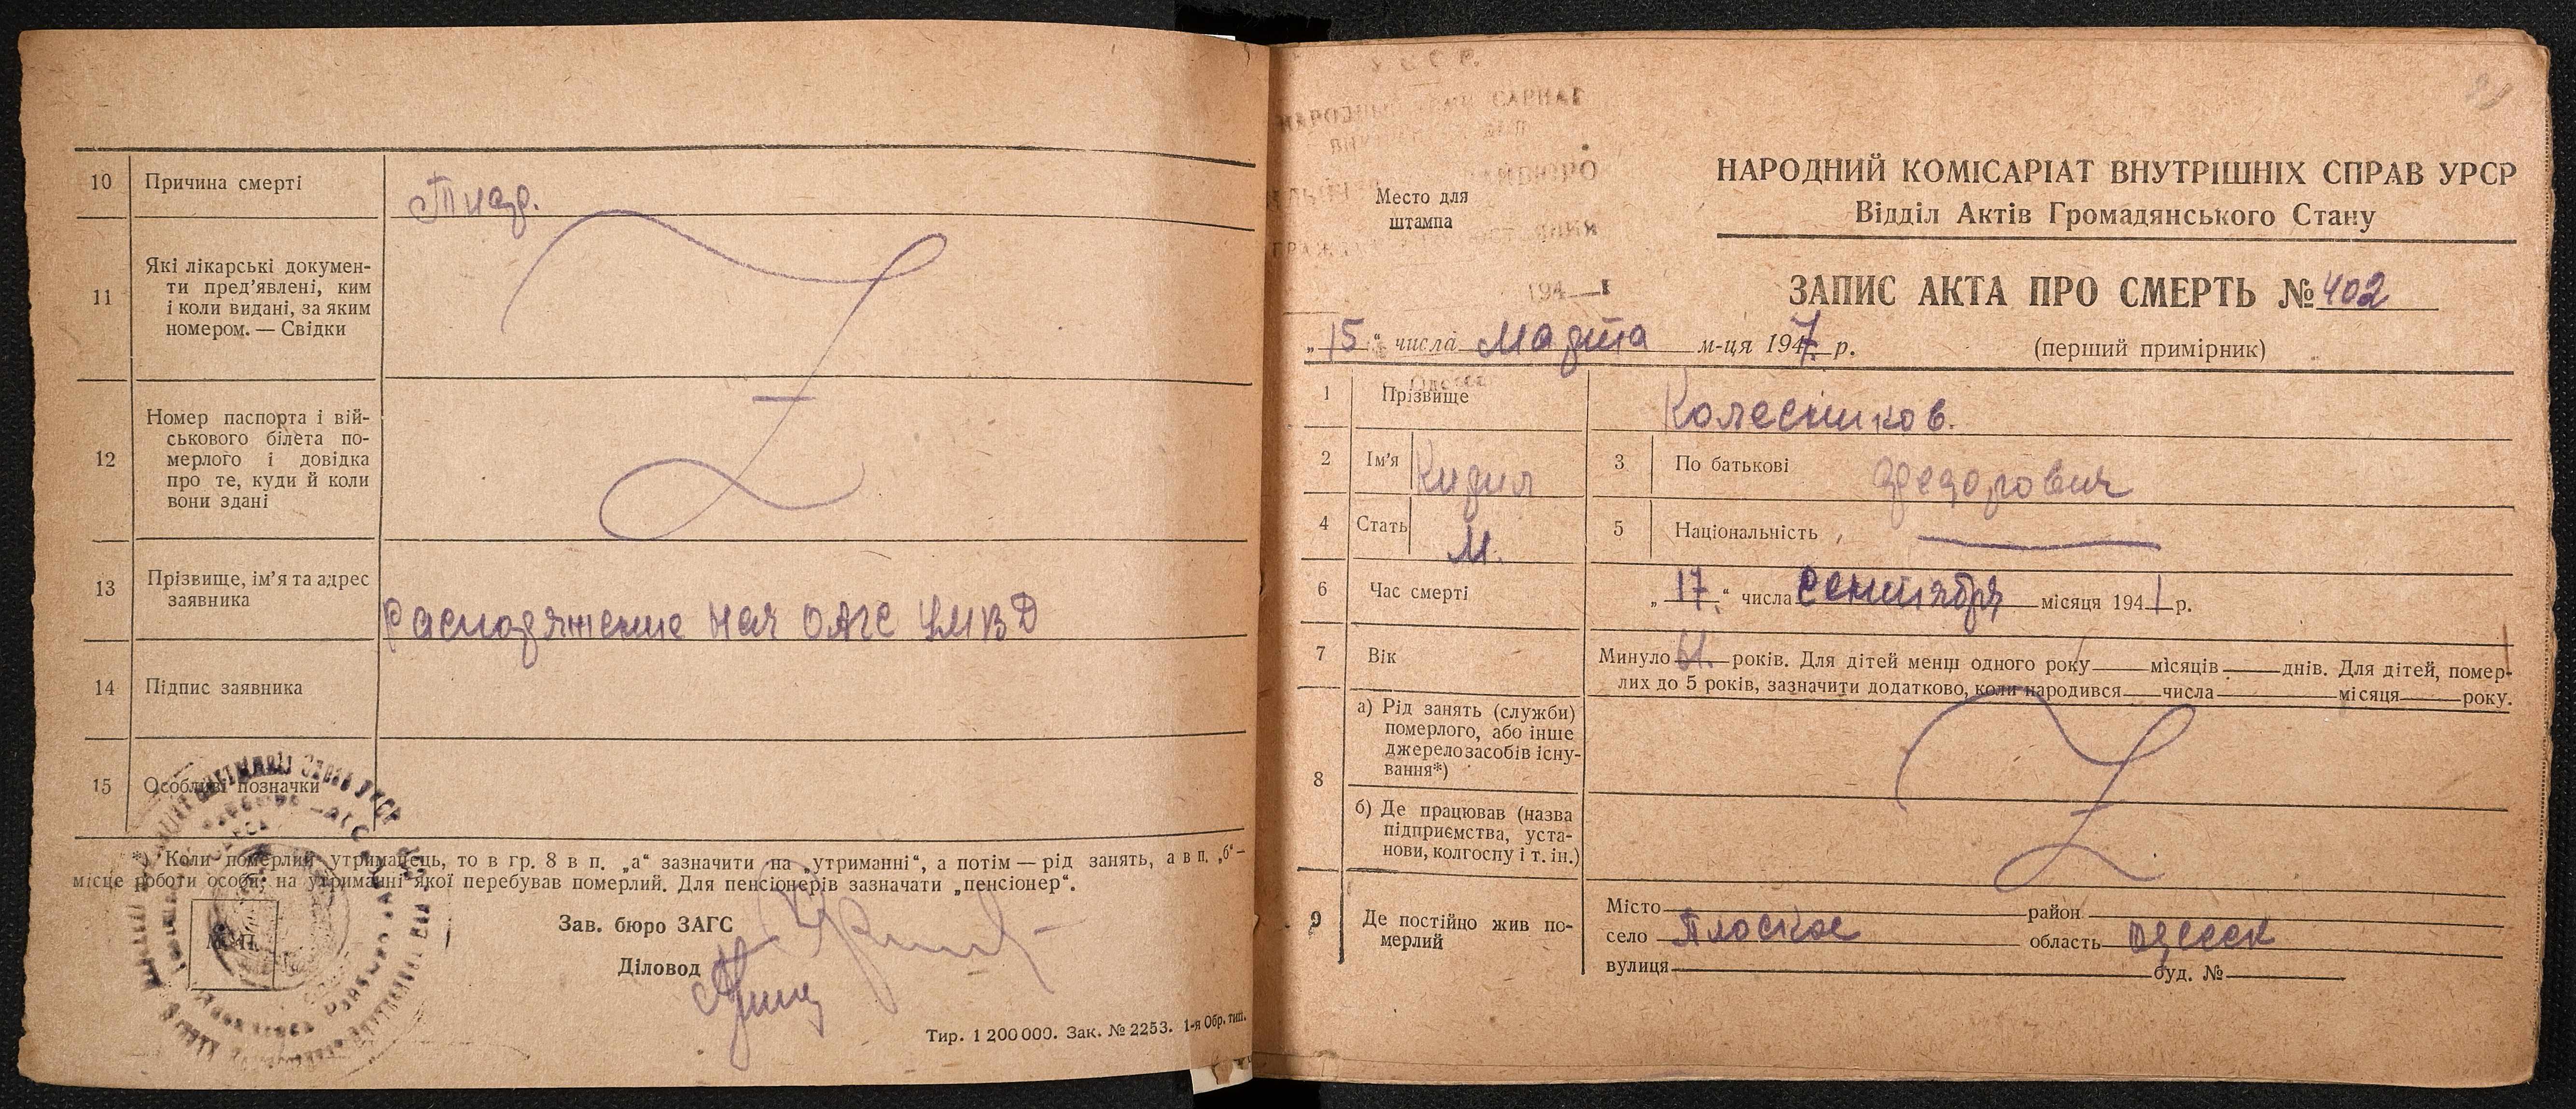 10 Причина смерті
11 Які лікарські докумен-
ти пред'явлені, ким
і коли видані, за яким
номером. — Свідки
12 Номер паспорта і вій-
ськового білета по-
мерлого і довідка
про те, куди й коли
вони здані
13 Прізвище, ім'я та адрес
заявника
Распоряжение нач ОАГС УМВД
14 Підпис заявника
15 Особливі позначки
*) Коли померлий утриманець, то в гр. 8 в п. „а“ зазначити „на утриманні“, а потім — рід занять, а в п. „б“ —
місце роботи особи, на утриманні якої перебував померлий. Для пенсіонерів зазначати „пенсіонер“.
М. П.
Зав. бюро ЗАГС
Діловод
Тир. 1 200 000. Зак. № 2253. 1-я Обр. тип.
Место для
штампа
194
НАРОДНИЙ КОМІСАРІАТ ВНУТРІШНІХ СПРАВ УРСР
Відділ Актів Громадянського Стану
ЗАПИС АКТА ПРО СМЕРТЬ № 402
„15“ числа Марта м-ця 1947 р. (перший примірник)
1 Прізвище Колесников.
2 Ім'я Кирил 3 По батькові Федорович
4 Стать М. 5 Національність —
6 Час смерті „17“ числа сентября місяця 1941 р.
7 Вік Минуло 61. років. Для дітей менш одного року — місяців — днів. Для дітей, помер-
лих до 5 років, зазначити додатково, коли народився — числа — місяця — року.
8 а) Рід занять (служби)
померлого, або інше
джерело засобів існу-
вання*)
б) Де працював (назва
підприємства, уста-
нови, колгоспу і т. ін.)
9 Де постійно жив по-
мерлий
Місто район
село Плоское область Одесск
вулиця буд. №